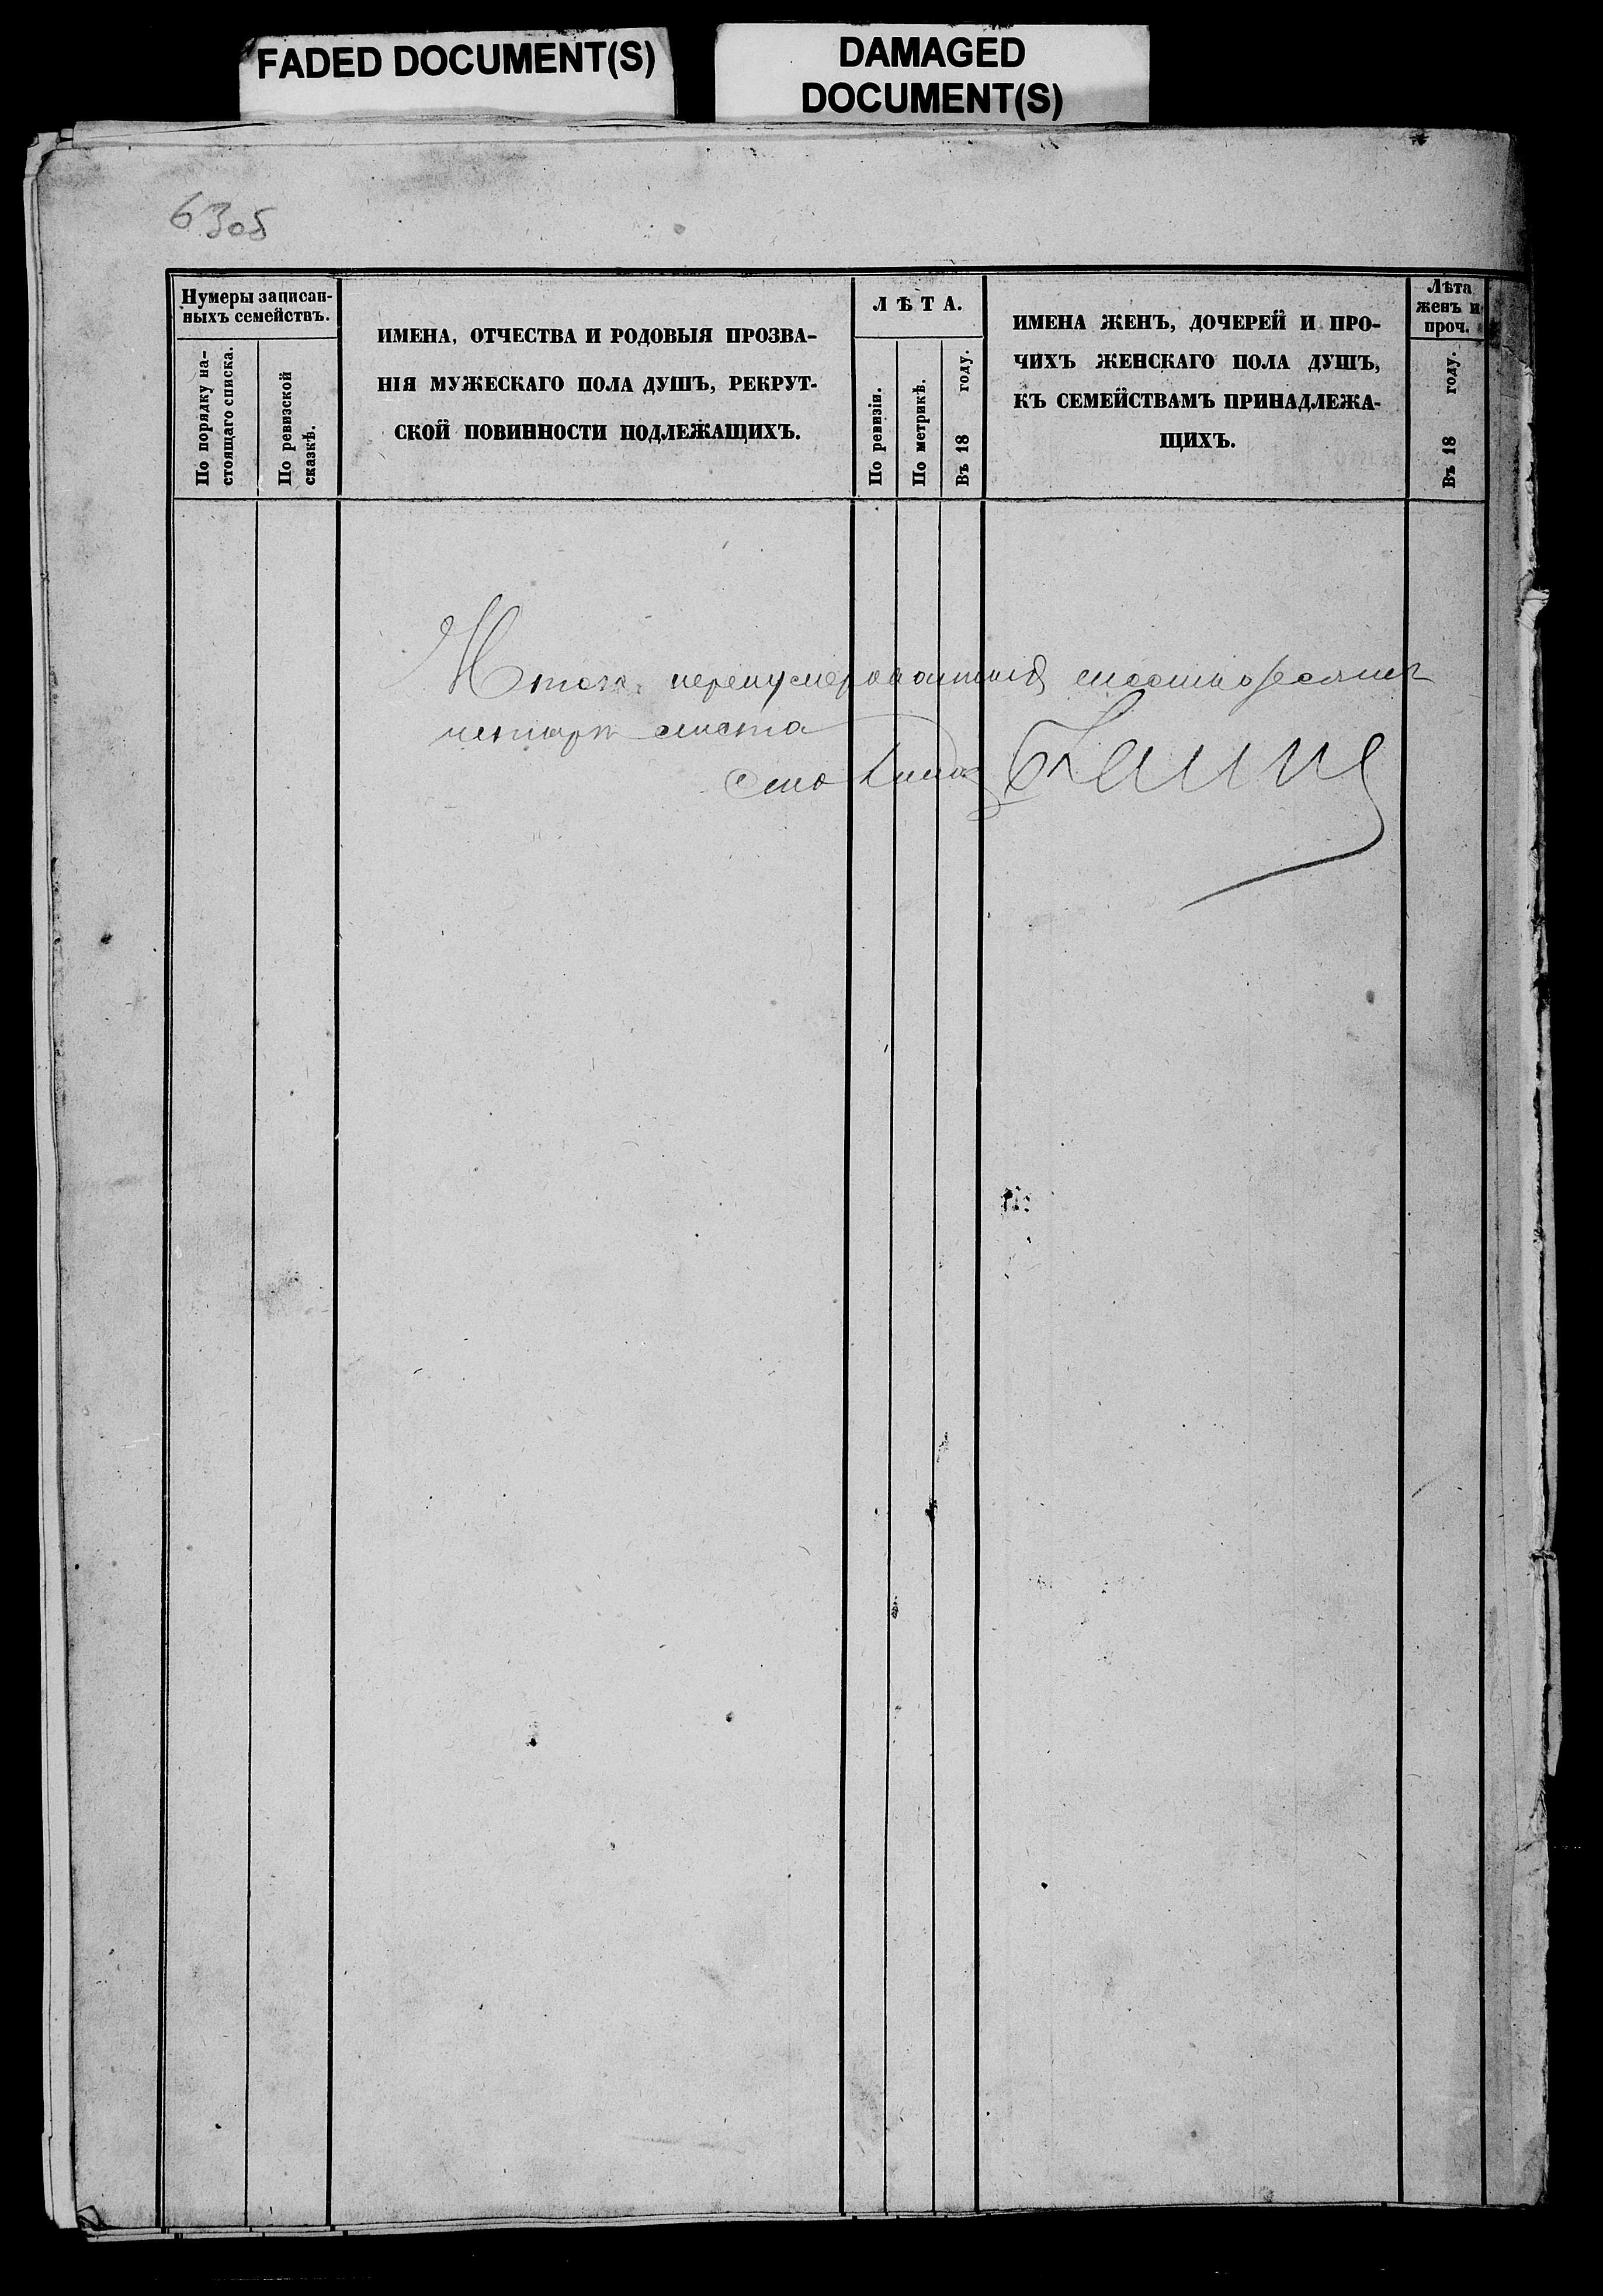 FADED DOCUMENT(S)
DAMAGED
DOCUMENT(S)
63об
Нумеры записан-
ныхъ семействъ.
По порядку на-
стоящаго списка.
По ревизской
сказкѣ.
ИМЕНА, ОТЧЕСТВА И РОДОВЫЯ ПРОЗВА-
НІЯ МУЖЕСКАГО ПОЛА ДУШЪ, РЕКРУТ-
СКОЙ ПОВИННОСТИ ПОДЛЕЖАЩИХЪ.
ЛѢТА.
По ревизіи.
По метрикѣ.
Въ 18 году.
ИМЕНА ЖЕНЪ, ДОЧЕРЕЙ И ПРО-
ЧИХЪ ЖЕНСКАГО ПОЛА ДУШЪ,
КЪ СЕМЕЙСТВАМЪ ПРИНАДЛЕЖА-
ЩИХЪ.
Лѣта
женъ и
проч.
Въ 18 году.
Итого перенумерованныхъ шестьдесятъ
четыре листа